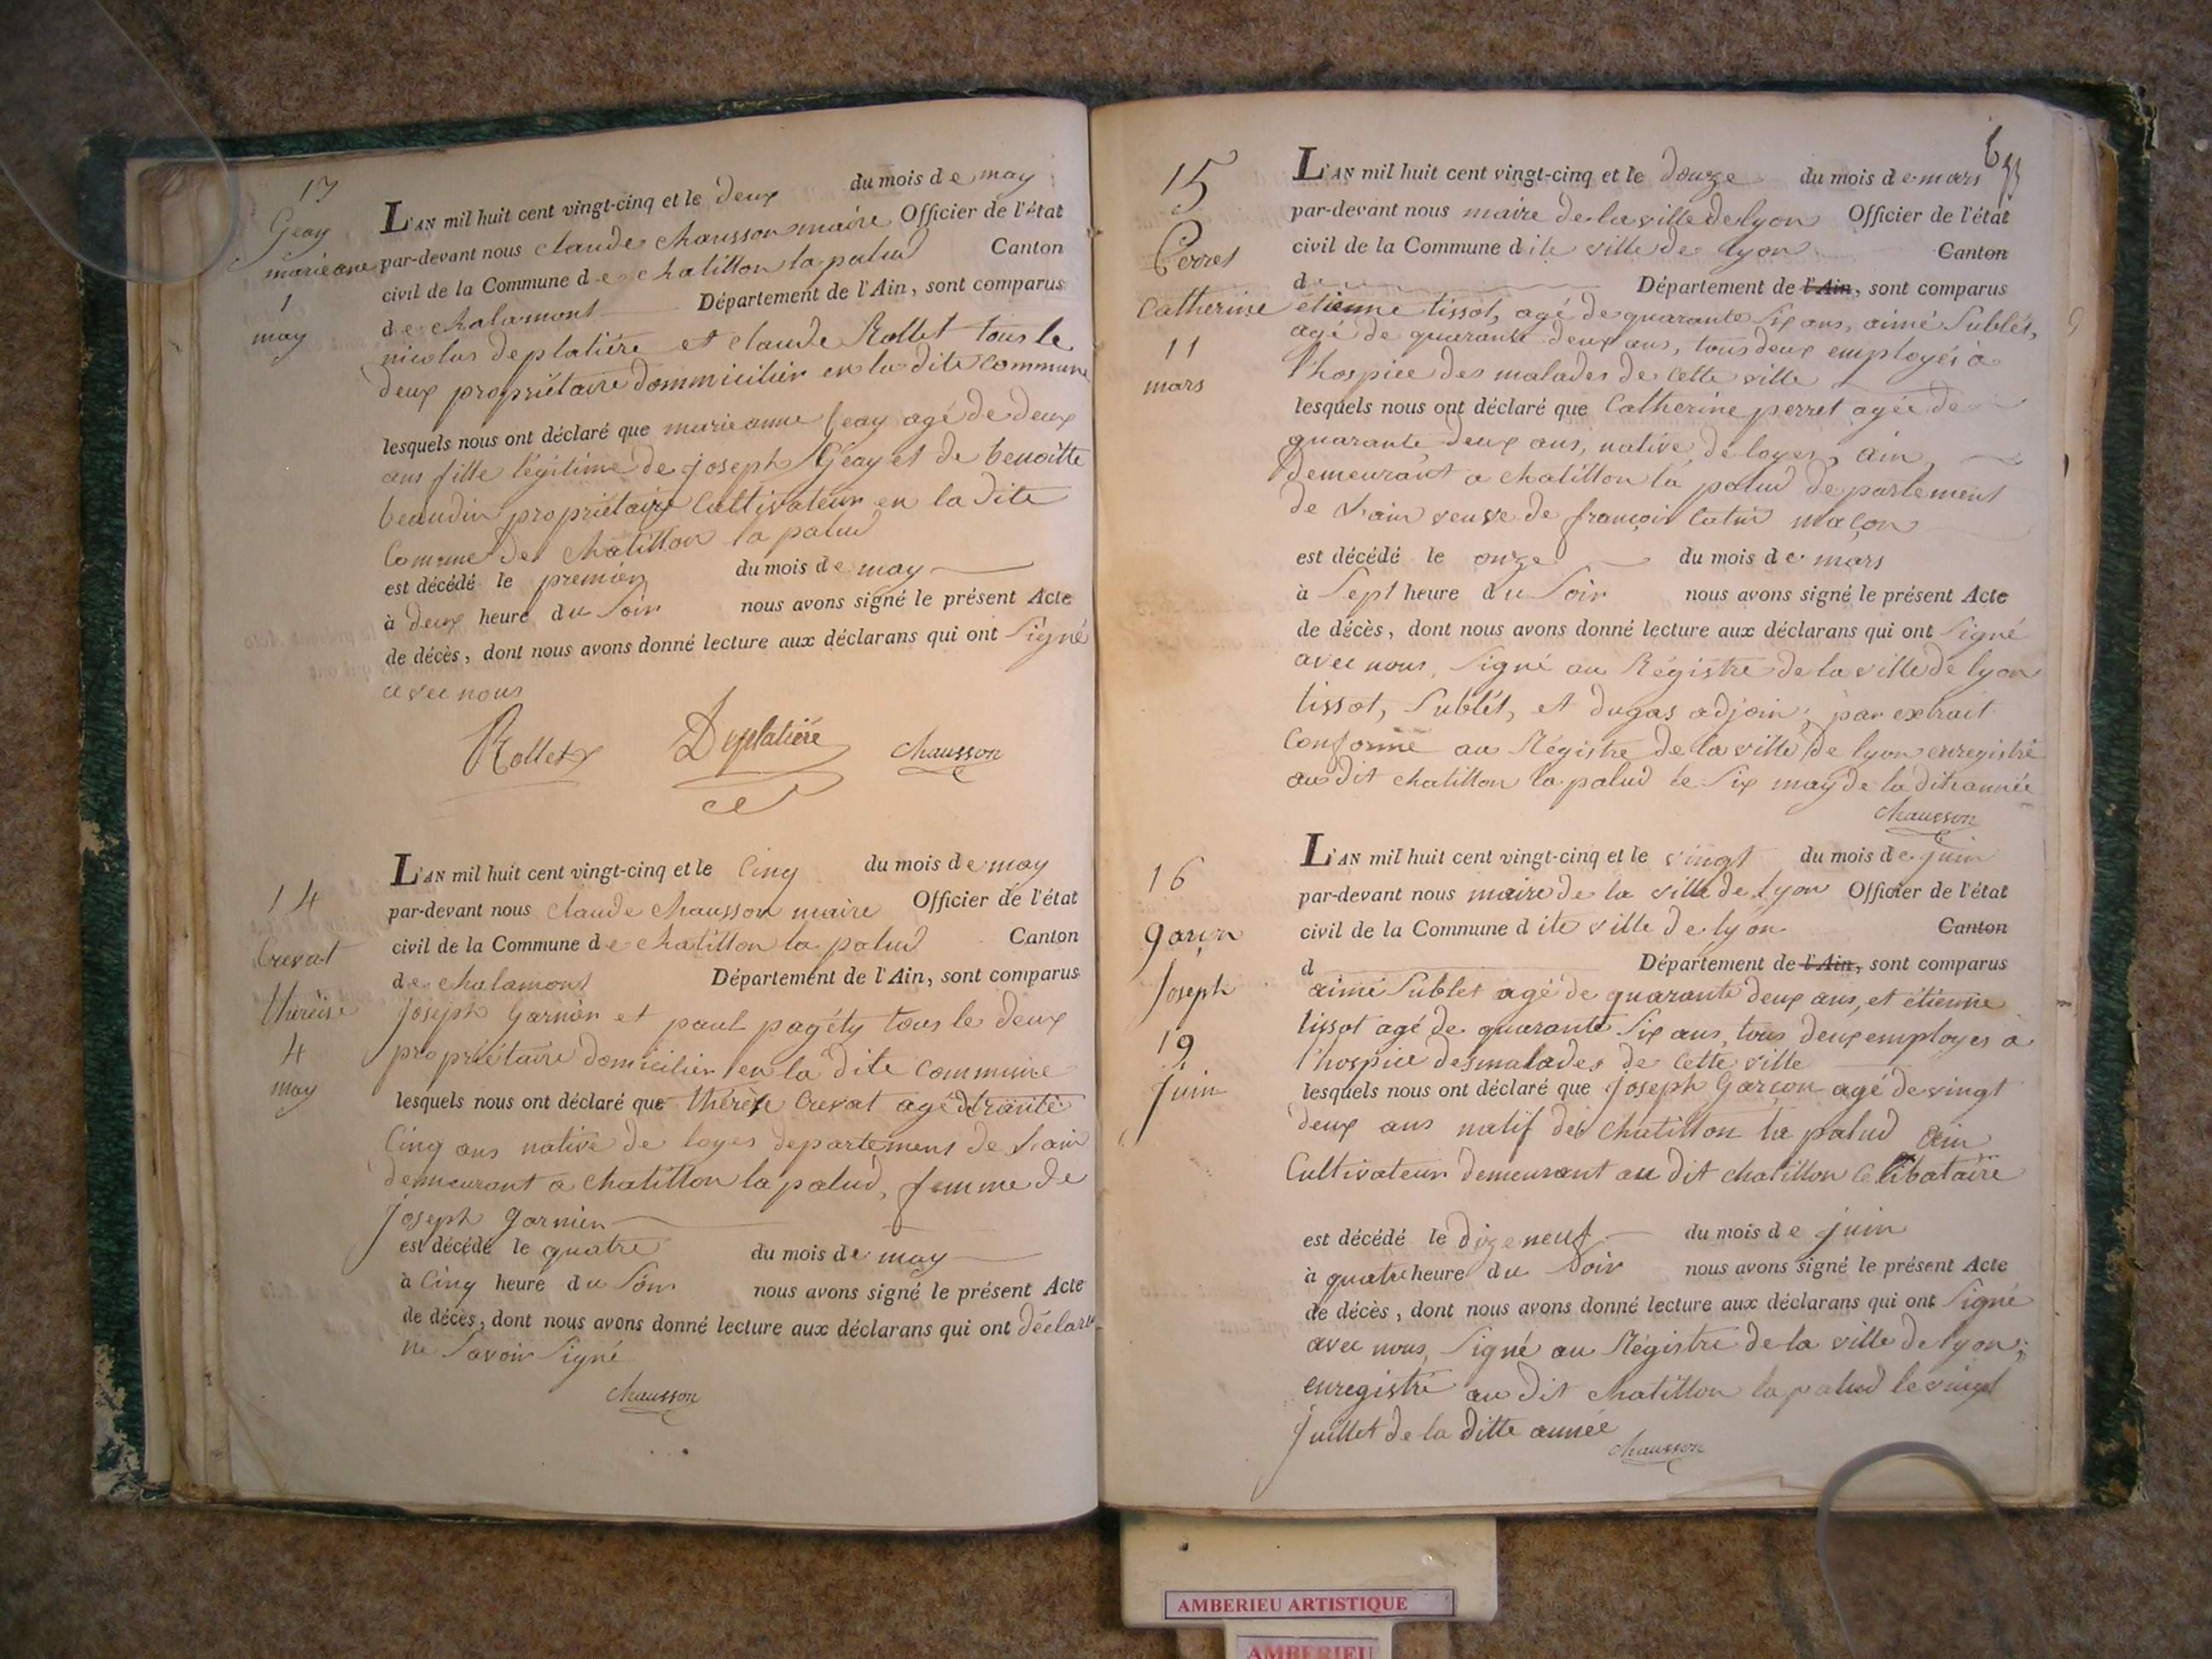 13
Geay
marieane
1
may
L'AN mil huit cent vingt-cinq et le deux du mois de may
par-devant nous claude chausson maire Officier de l'état
civil de la Commune de chatillon la palud Canton
de chalamont Département de l'Ain, sont comparus
nicolas deplatiére et claude Rollet tous le
deux propriétaire dommicilier en la dite commune
lesquels nous ont déclaré que marieanne geay agé de deux
ans fille légitime de joseph Géay et de benoitte
beaudin propriétaire Cultivateur en la dite
Comune de chatillon la palud
est décédé le premier du mois de may
à deux heure du soir nous avons signé le présent Acte
de décès, dont nous avons donné lecture aux déclarans qui ont signé
avec nous
Rollet Deplatiére chausson
14
Crevat
thérèse
4
may
L'AN mil huit cent vingt-cinq et le Cinq du mois de may
par-devant nous claude chausson maire Officier de l'état
civil de la Commune de chatillon la palud Canton
de chalamont Département de l'Ain, sont comparus
joseph garnier et paul pagéty tous le deux
propriétaire domicilier en la dite commune
lesquels nous ont déclaré que thérèse Crevat agé
Cinq ans native de loyes departement de l'ain
demeurant a chatillon la palud, femme de
joseph garnier
est décédé le quatre du mois de may
à Cinq heure du soir nous avons signé le présent Acte
de décès, dont nous avons donné lecture aux déclarans qui ont déclaré
ne savoir signé
chausson
15
Perret
Catherine
11
mars
L'AN mil huit cent vingt-cinq et le douze du mois de mars
par-devant nous maire de la ville de lyon Officier de l'état
civil de la Commune dite ville de lyon Canton
d Département de l'Ain, sont comparus
étienne tissot, agé de quarante six ans, aimé Sublet,
agé de quarante deux ans, tous deux employés à
l'hospice des malades de cette ville
lesquels nous ont déclaré que Catherine perret agée de
quarante deux ans, native de loyes, ain,
demeurant a chatillon la palud departement
de l'ain veuve de françois maçon
est décédé le onze du mois de mars
à Sept heure du Soir nous avons signé le présent Acte
de décès, dont nous avons donné lecture aux déclarans qui ont signé
avec nous, signé au Régistre de la ville de lyon
tissot, Sublet, et dugas adjoin; par extrait
Conforme au Régistre de la ville de lyon enregistré
au dit chatillon la palud le six may de la dite année
chausson
16
garçon
joseph
19
juin
L'AN mil huit cent vingt-cinq et le vingt du mois de juin
par-devant nous maire de la ville de lyon Officier de l'état
civil de la Commune dite ville de lyon Canton
d Département de l'Ain, sont comparus
aimé Sublet agé de quarante deux ans, et étienne
tissot agé de quarante six ans, tous deux employés a
l'hospice des malades de cette ville
lesquels nous ont déclaré que joseph Garçon agé de vingt
deux ans natif de chatillon la palud ain
Cultivateur demeurant au dit chatillon celibataire
est décédé le dizeneuf du mois de juin
à quatre heure du Soir nous avons signé le présent Acte
de décès, dont nous avons donné lecture aux déclarans qui ont signé
avec nous, signé au Régistre de la ville de lyon;
enregistré au dit chatillon la palud le vingt
juillet de la ditte année
chausson
AMBERIEU ARTISTIQUE
AMBERIEU